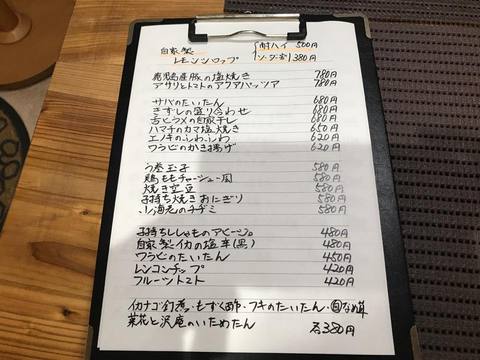 自家製 酎ハイ 500円
レモンシロップ ソーダ割 380円
鹿児島産豚の塩焼き 780円
アサリとトマトのアクアパッツァ 780円
サバのたいたん 680円
きずしの盛り合わせ 680円
舌ヒラメの自家干し 680円
ハマチのカマ塩焼き 650円
エノキのふわふわ 620円
ワラビのかき揚げ 620円
う巻玉子 580円
鶏ももチャーシュー風 580円
焼き空豆 580円
子持ち焼きおにぎり 580円
小海老のチヂミ 580円
子持ちししゃものアヒージョ 480円
自家製イカの塩辛(黒) 480円
ワラビのたいたん 450円
レンコンチップ 420円
フルーツトマト 420円
イカナゴ釘煮・もずく酢・フキのたいたん・なめ茸
菜花と沢庵のいためたん 各380円